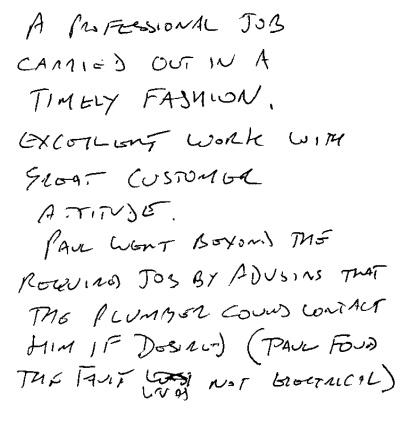 A PROFESSIONAL JOB
CARRIED OUT IN A
TIMELY FASHION.
EXCELLENT WORK WITH
GREAT CUSTOMER
ATTITUDE.
PAUL WENT BEYOND THE
REQUIRED JOB BY ADVISING THAT
THE PLUMBER COULD CONTACT
HIM IF DESIRED (PAUL FOUND
THE FAULT WAS NOT ELECTRICAL)